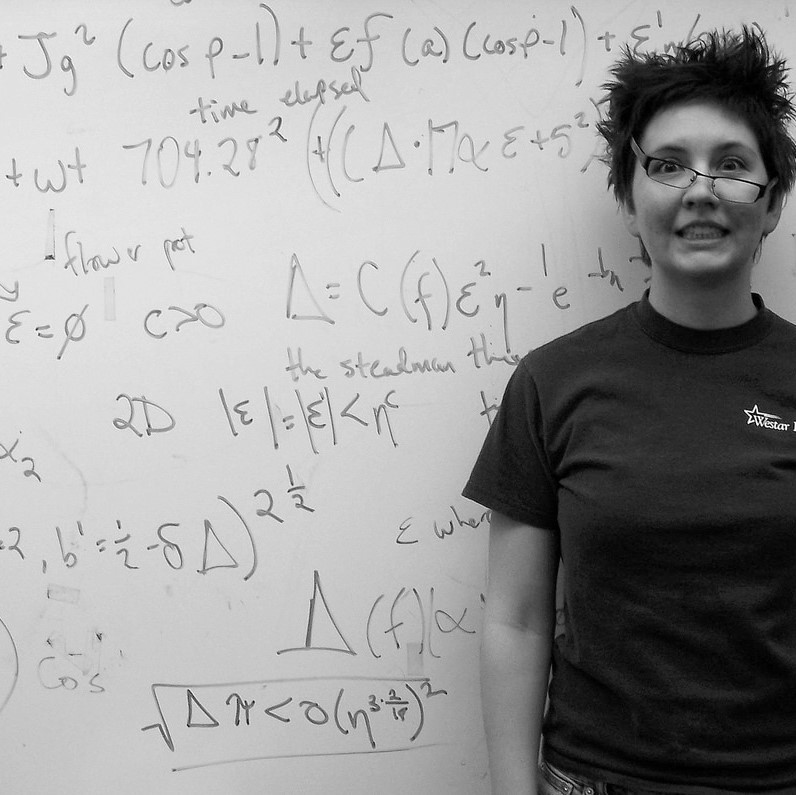 + Jg² (cos ρ-1) + εf (a) (cosρ-1) + ε'
time elapsed
+ wt 704.28² + ((Δ·17α ε+5²)
flower pot
ε=∅ c>0 Δ= C(f)ε²η⁻¹e
the steadman
2D |ε|=|ε'|<ηᶜ
α₂
, b'=½-δΔ)2^½
ε where
Δ(f)(α'
Cos
√Δπ<O(η^3·2/18)²
Westar